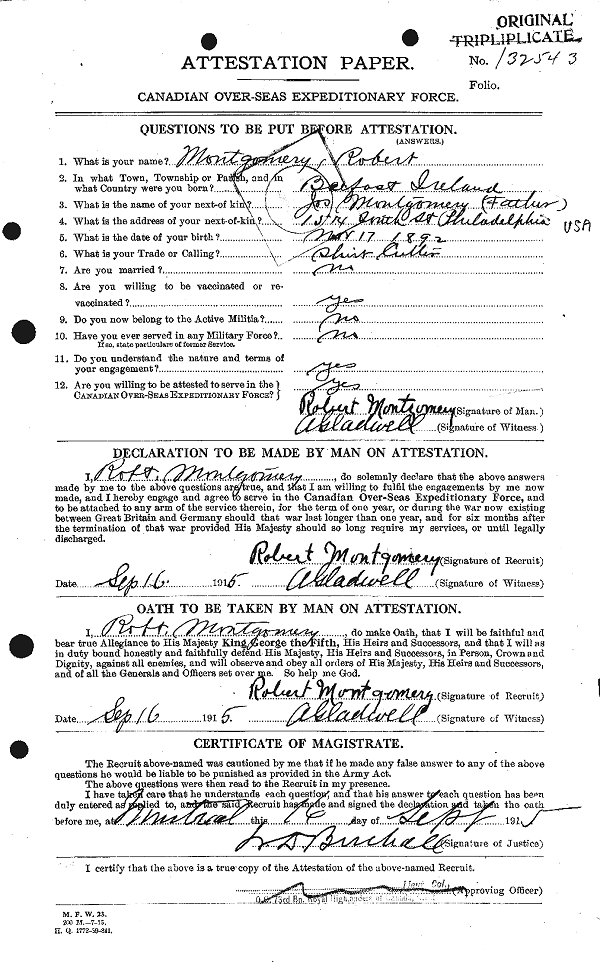 ORIGINAL
TRIPLIPLICATE
ATTESTATION PAPER.
No. 132543
Folio.
CANADIAN OVER-SEAS EXPEDITIONARY FORCE.
QUESTIONS TO BE PUT BEFORE ATTESTATION.
(ANSWERS.)
1. What is your name? Montgomery, Robert
2. In what Town, Township or Parish, and in
what Country were you born? Belfast Ireland
3. What is the name of your next-of kin? Jos Montgomery (Father)
4. What is the address of your next-of-kin? South St Philadelphia USA
5. What is the date of your birth? Nov 17 1892
6. What is your Trade or Calling? Shirt Cutter
7. Are you married? no
8. Are you willing to be vaccinated or re-
vaccinated? yes
9. Do you now belong to the Active Militia? no
10. Have you ever served in any Military Force? no
If so, state particulars of former Service.
11. Do you understand the nature and terms of
your engagement? yes
12. Are you willing to be attested to serve in the } yes
CANADIAN OVER-SEAS EXPEDITIONARY FORCE? }
Robert Montgomery (Signature of Man.)
A Gladwell (Signature of Witness)
DECLARATION TO BE MADE BY MAN ON ATTESTATION.
I, Robt. Montgomery, do solemnly declare that the above answers
made by me to the above questions are true, and that I am willing to fulfil the engagements by me now
made, and I hereby engage and agree to serve in the Canadian Over-Seas Expeditionary Force, and
to be attached to any arm of the service therein, for the term of one year, or during the war now existing
between Great Britain and Germany should that war last longer than one year, and for six months after
the termination of that war provided His Majesty should so long require my services, or until legally
discharged.
Robert Montgomery (Signature of Recruit)
Date Sep 16 1915 A Gladwell (Signature of Witness)
OATH TO BE TAKEN BY MAN ON ATTESTATION.
I, Robt. Montgomery, do make Oath, that I will be faithful and
bear true Allegiance to His Majesty King George the Fifth, His Heirs and Successors, and that I will as
in duty bound honestly and faithfully defend His Majesty, His Heirs and Successors, in Person, Crown and
Dignity, against all enemies, and will observe and obey all orders of His Majesty, His Heirs and Successors,
and of all the Generals and Officers set over me. So help me God.
Robert Montgomery (Signature of Recruit)
Date Sep 16 1915 A Gladwell (Signature of Witness)
CERTIFICATE OF MAGISTRATE.
The Recruit above-named was cautioned by me that if he made any false answer to any of the above
questions he would be liable to be punished as provided in the Army Act.
The above questions were then read to the Recruit in my presence.
I have taken care that he understands each question, and that his answer to each question has been
duly entered as replied to, and the said Recruit has made and signed the declaration and taken the oath
before me, at Montreal this 16 day of Sept 1915
(Signature of Justice)
I certify that the above is a true copy of the Attestation of the above-named Recruit.
Lieut Col. (Approving Officer)
O.C. 73rd Bn. Royal Highlanders of Canada
M. F. W. 23.
200 M.—7-15.
H. Q. 1772-39-841.